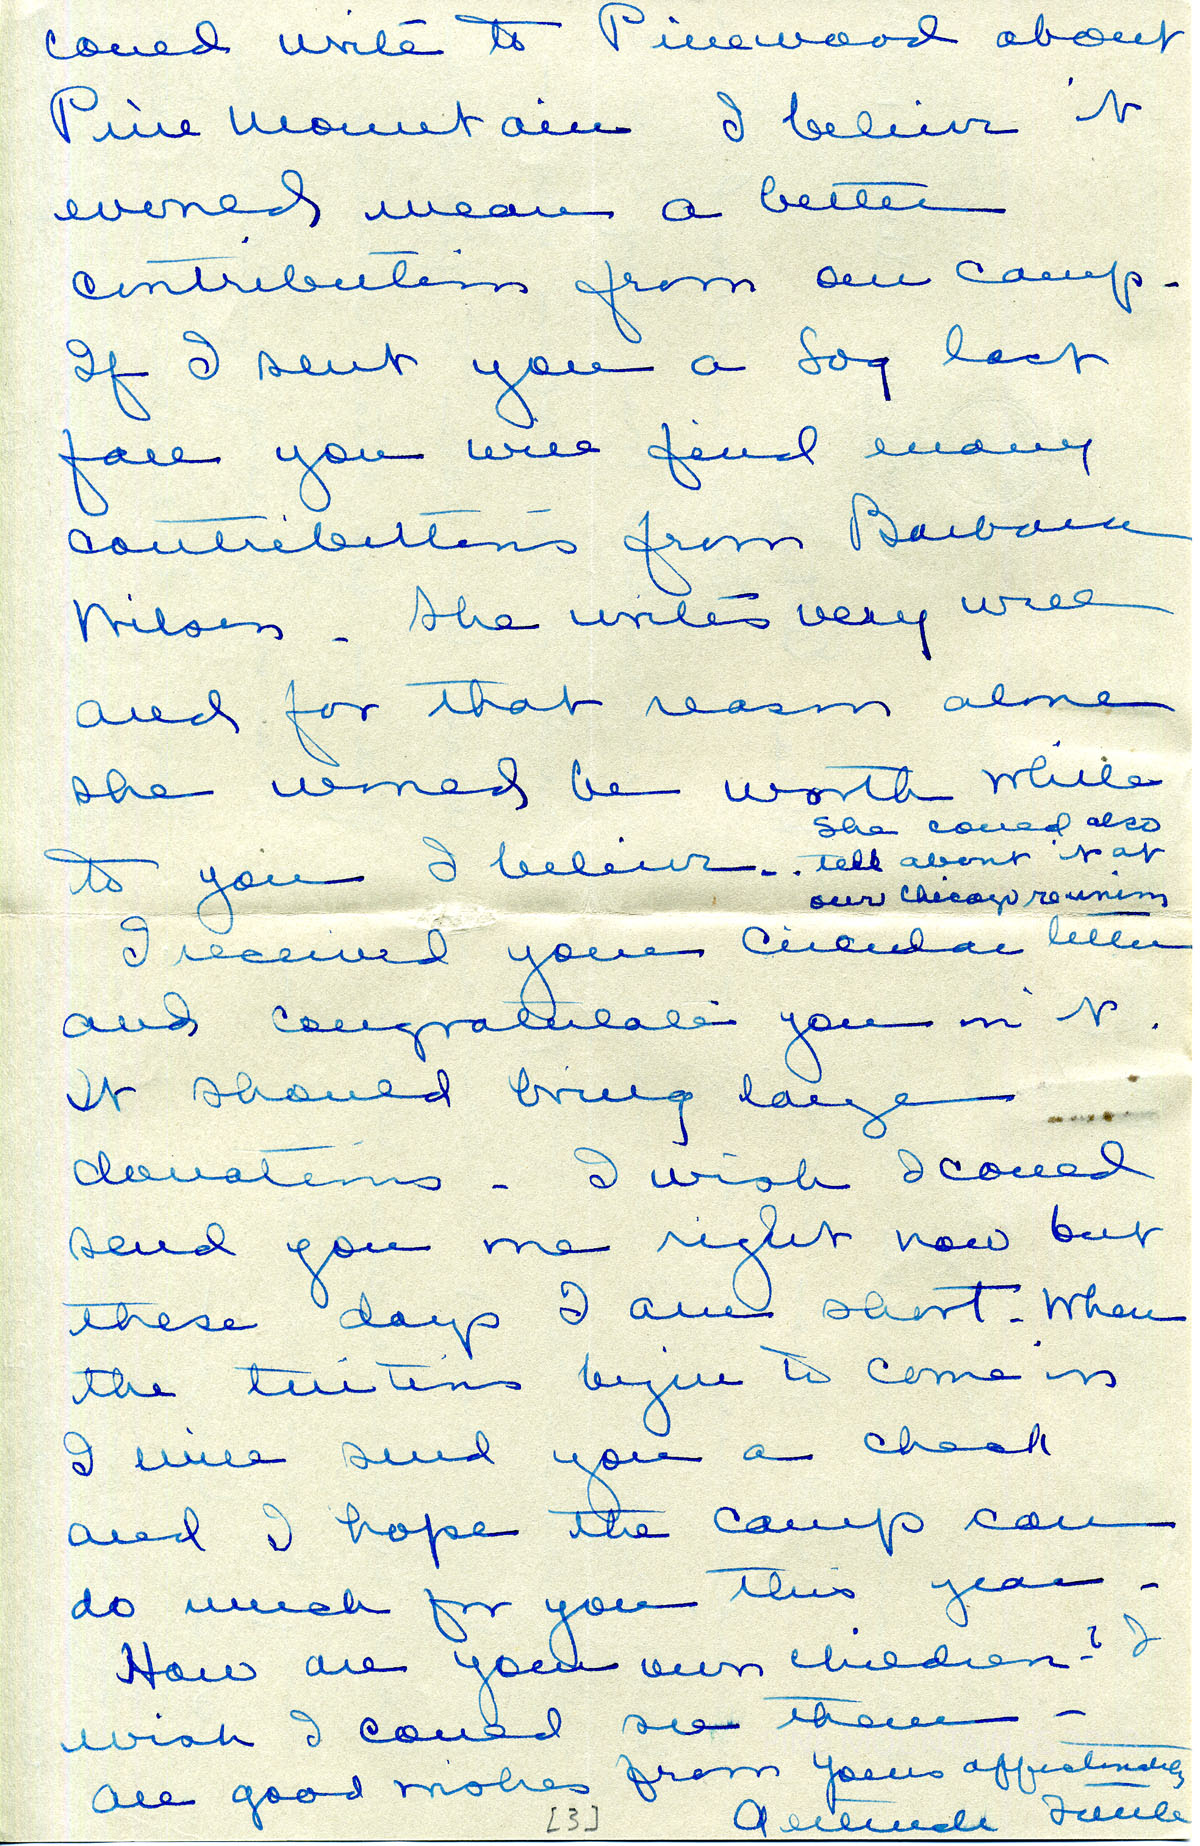 could write to Pinewood about
Pine Mountain I believe it
would mean a better
contribution from our camp -
If I sent you a Log last
fall you will find many
contributions from Barbara
Wilson - She writes very well
and for that reason alone
she would be worth while
to you I believe - . She could also
tell about it at
our Chicago reunion
I received your circular letter
and congratulate you on it .
It should bring large
donations - I wish I could
send you one right now but
these days I am short - When
the tuitions begin to come in
I will send you a check
and I hope the camp can
do much for you this year -
How are your own children ? I
wish I could see them -
All good wishes from yours affectionately
[3] Gertrude